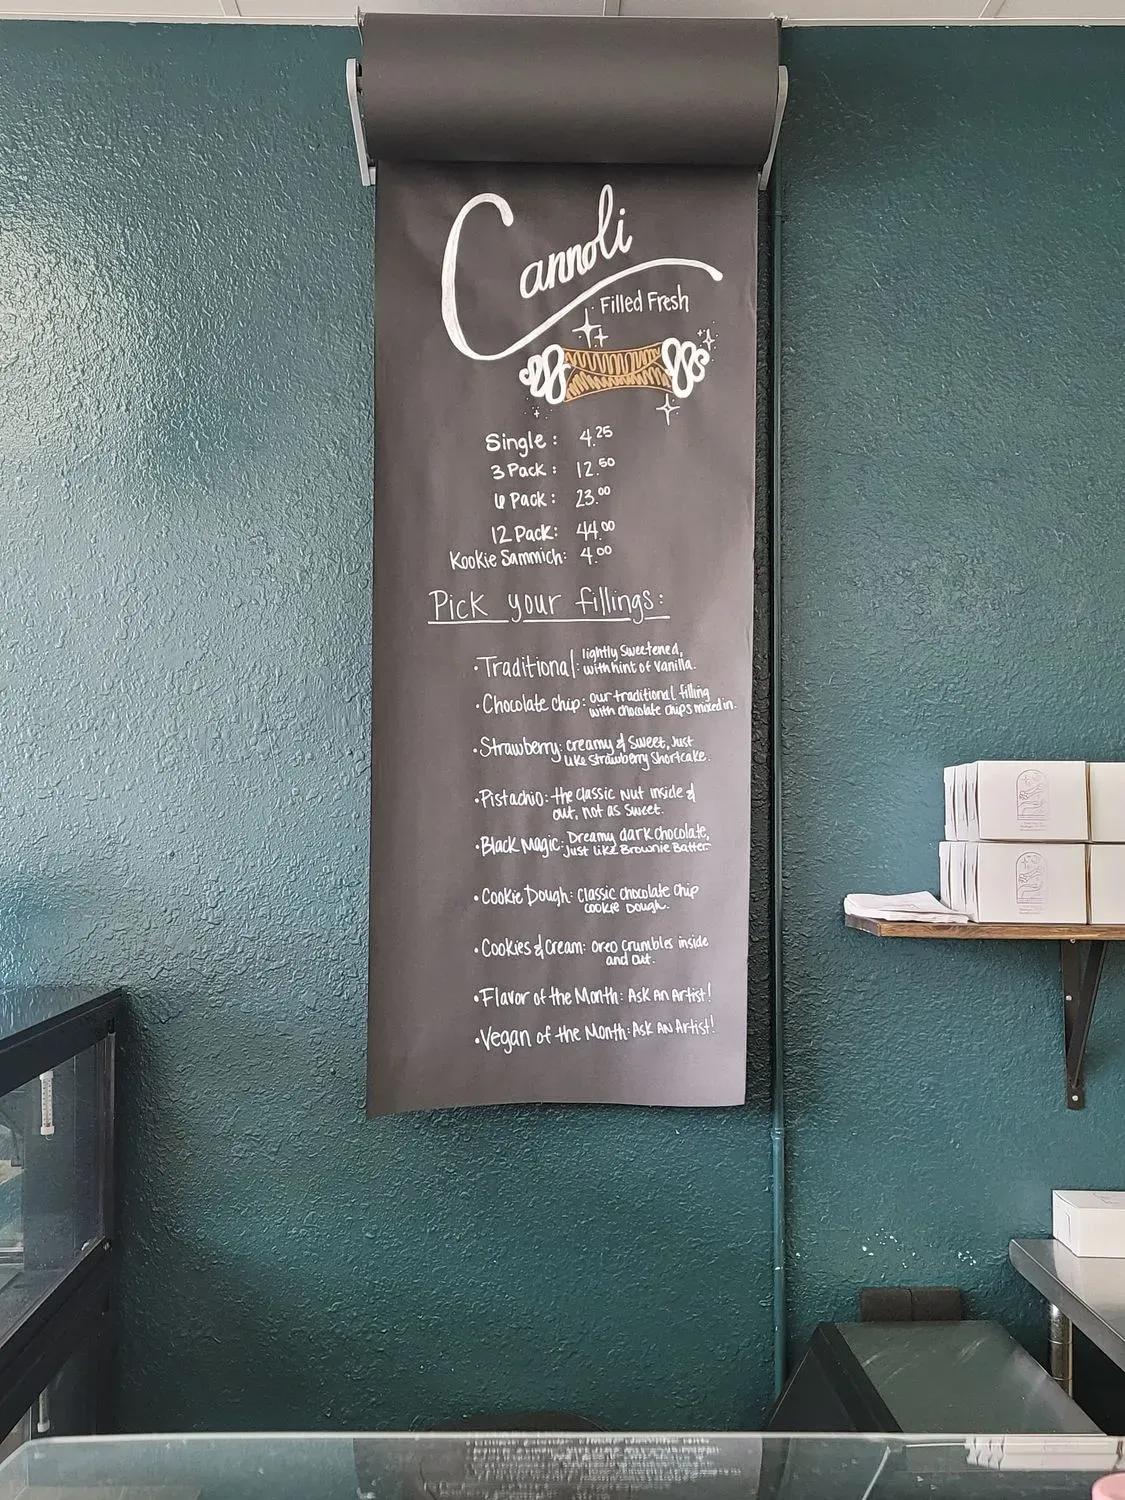 Cannoli
Filled Fresh
Single: 4.25
3 Pack: 12.50
6 Pack: 23.00
12 Pack: 44.00
Kookie Sammich: 4.00
Pick your fillings:
• Traditional: lightly sweetened,
with hint of vanilla.
• Chocolate chip: our traditional filling
with chocolate chips mixed in.
• Strawberry: creamy & sweet, just
like strawberry shortcake.
• Pistachio: the classic nut inside &
out, not as sweet.
• Black Magic: Dreamy dark chocolate,
just like Brownie Batter.
• Cookie Dough: Classic chocolate chip
cookie dough.
• Cookies & Cream: oreo crumbles inside
and out.
• Flavor of the Month: Ask An Artist!
• Vegan of the Month: Ask An Artist!